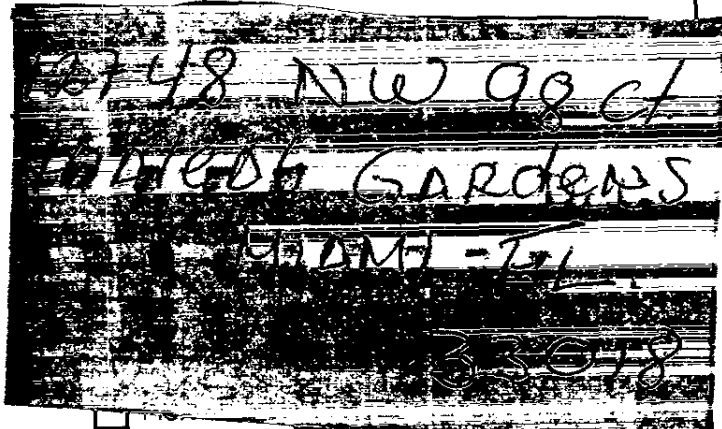 12748 NW 98 ct.
HIALEAH GARDENS
MIAMI - FL.
33018